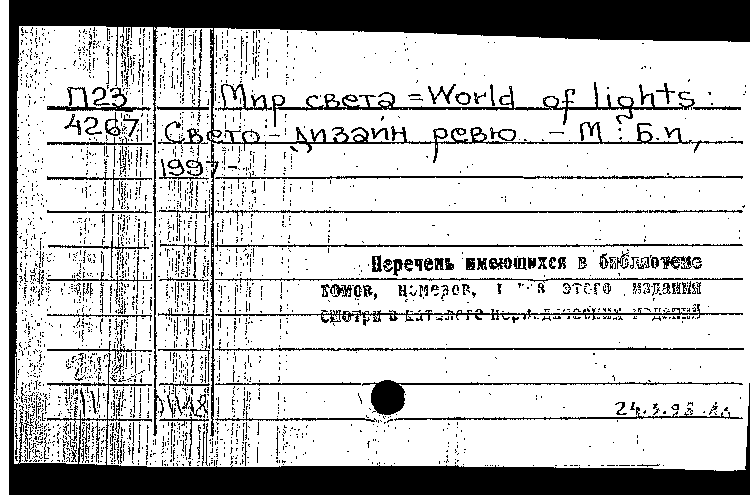 П23 Мир света = World of lights:
4267 Свето-дизайн ревю. - М.: Б.и,
1997 -
Перечень имеющихся в библиотеке
томов, номеров, этого издания
смотри в каталоге периодических изданий
24.3.98